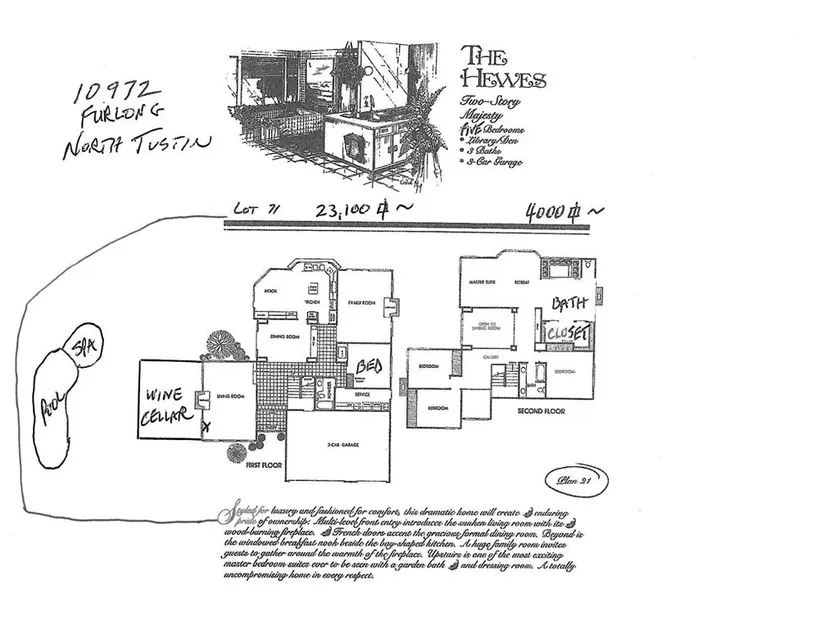 10972
FURLONG
NORTH TUSTIN
THE
HEWES
Two-Story
Majesty
FIVE Bedrooms
• Library/Den
• 3 Baths
• 3-Car Garage
LOT 71 23,100 ⏍ ~ 4000 ⏍ ~
NOOK
KITCHEN
FAMILY ROOM
DINING ROOM
BED
WINE
CELLAR
LIVING ROOM
POWDER
SERVICE
3-CAR GARAGE
FIRST FLOOR
SPA
POOL
MASTER SUITE
RETREAT
BATH
CLOSET
OPEN TO
DINING ROOM
GALLERY
BEDROOM
BATH
BEDROOM
BEDROOM
SECOND FLOOR
Plan 21
Styled for luxury and fashioned for comfort, this dramatic home will create enduring
pride of ownership. Multi-level front entry introduces the sunken living room with its
wood-burning fireplace. French doors accent the gracious formal dining room. Beyond is
the windowed breakfast nook beside the bay-shaped kitchen. A huge family room invites
guests to gather around the warmth of the fireplace. Upstairs is one of the most exciting
master bedroom suites ever to be seen with a garden bath and dressing room. A totally
uncompromising home in every respect.